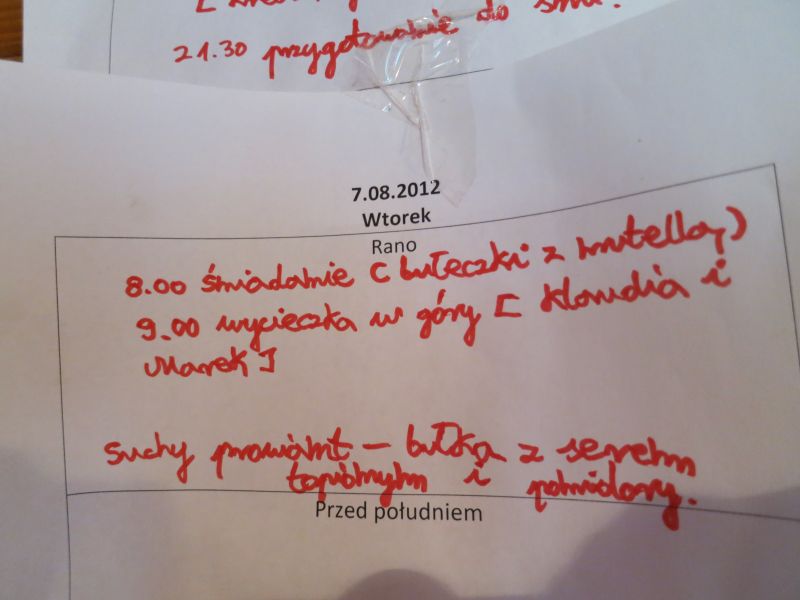 21.30 przygotowanie do snu.
7.08.2012
Wtorek
Rano
8.00 śniadanie ( bułeczki z nutellą)
9.00 wycieczka w góry [ Klaudia i
Marek]
suchy prowiant – bułka z serem
topionym i pomidory.
Przed południem